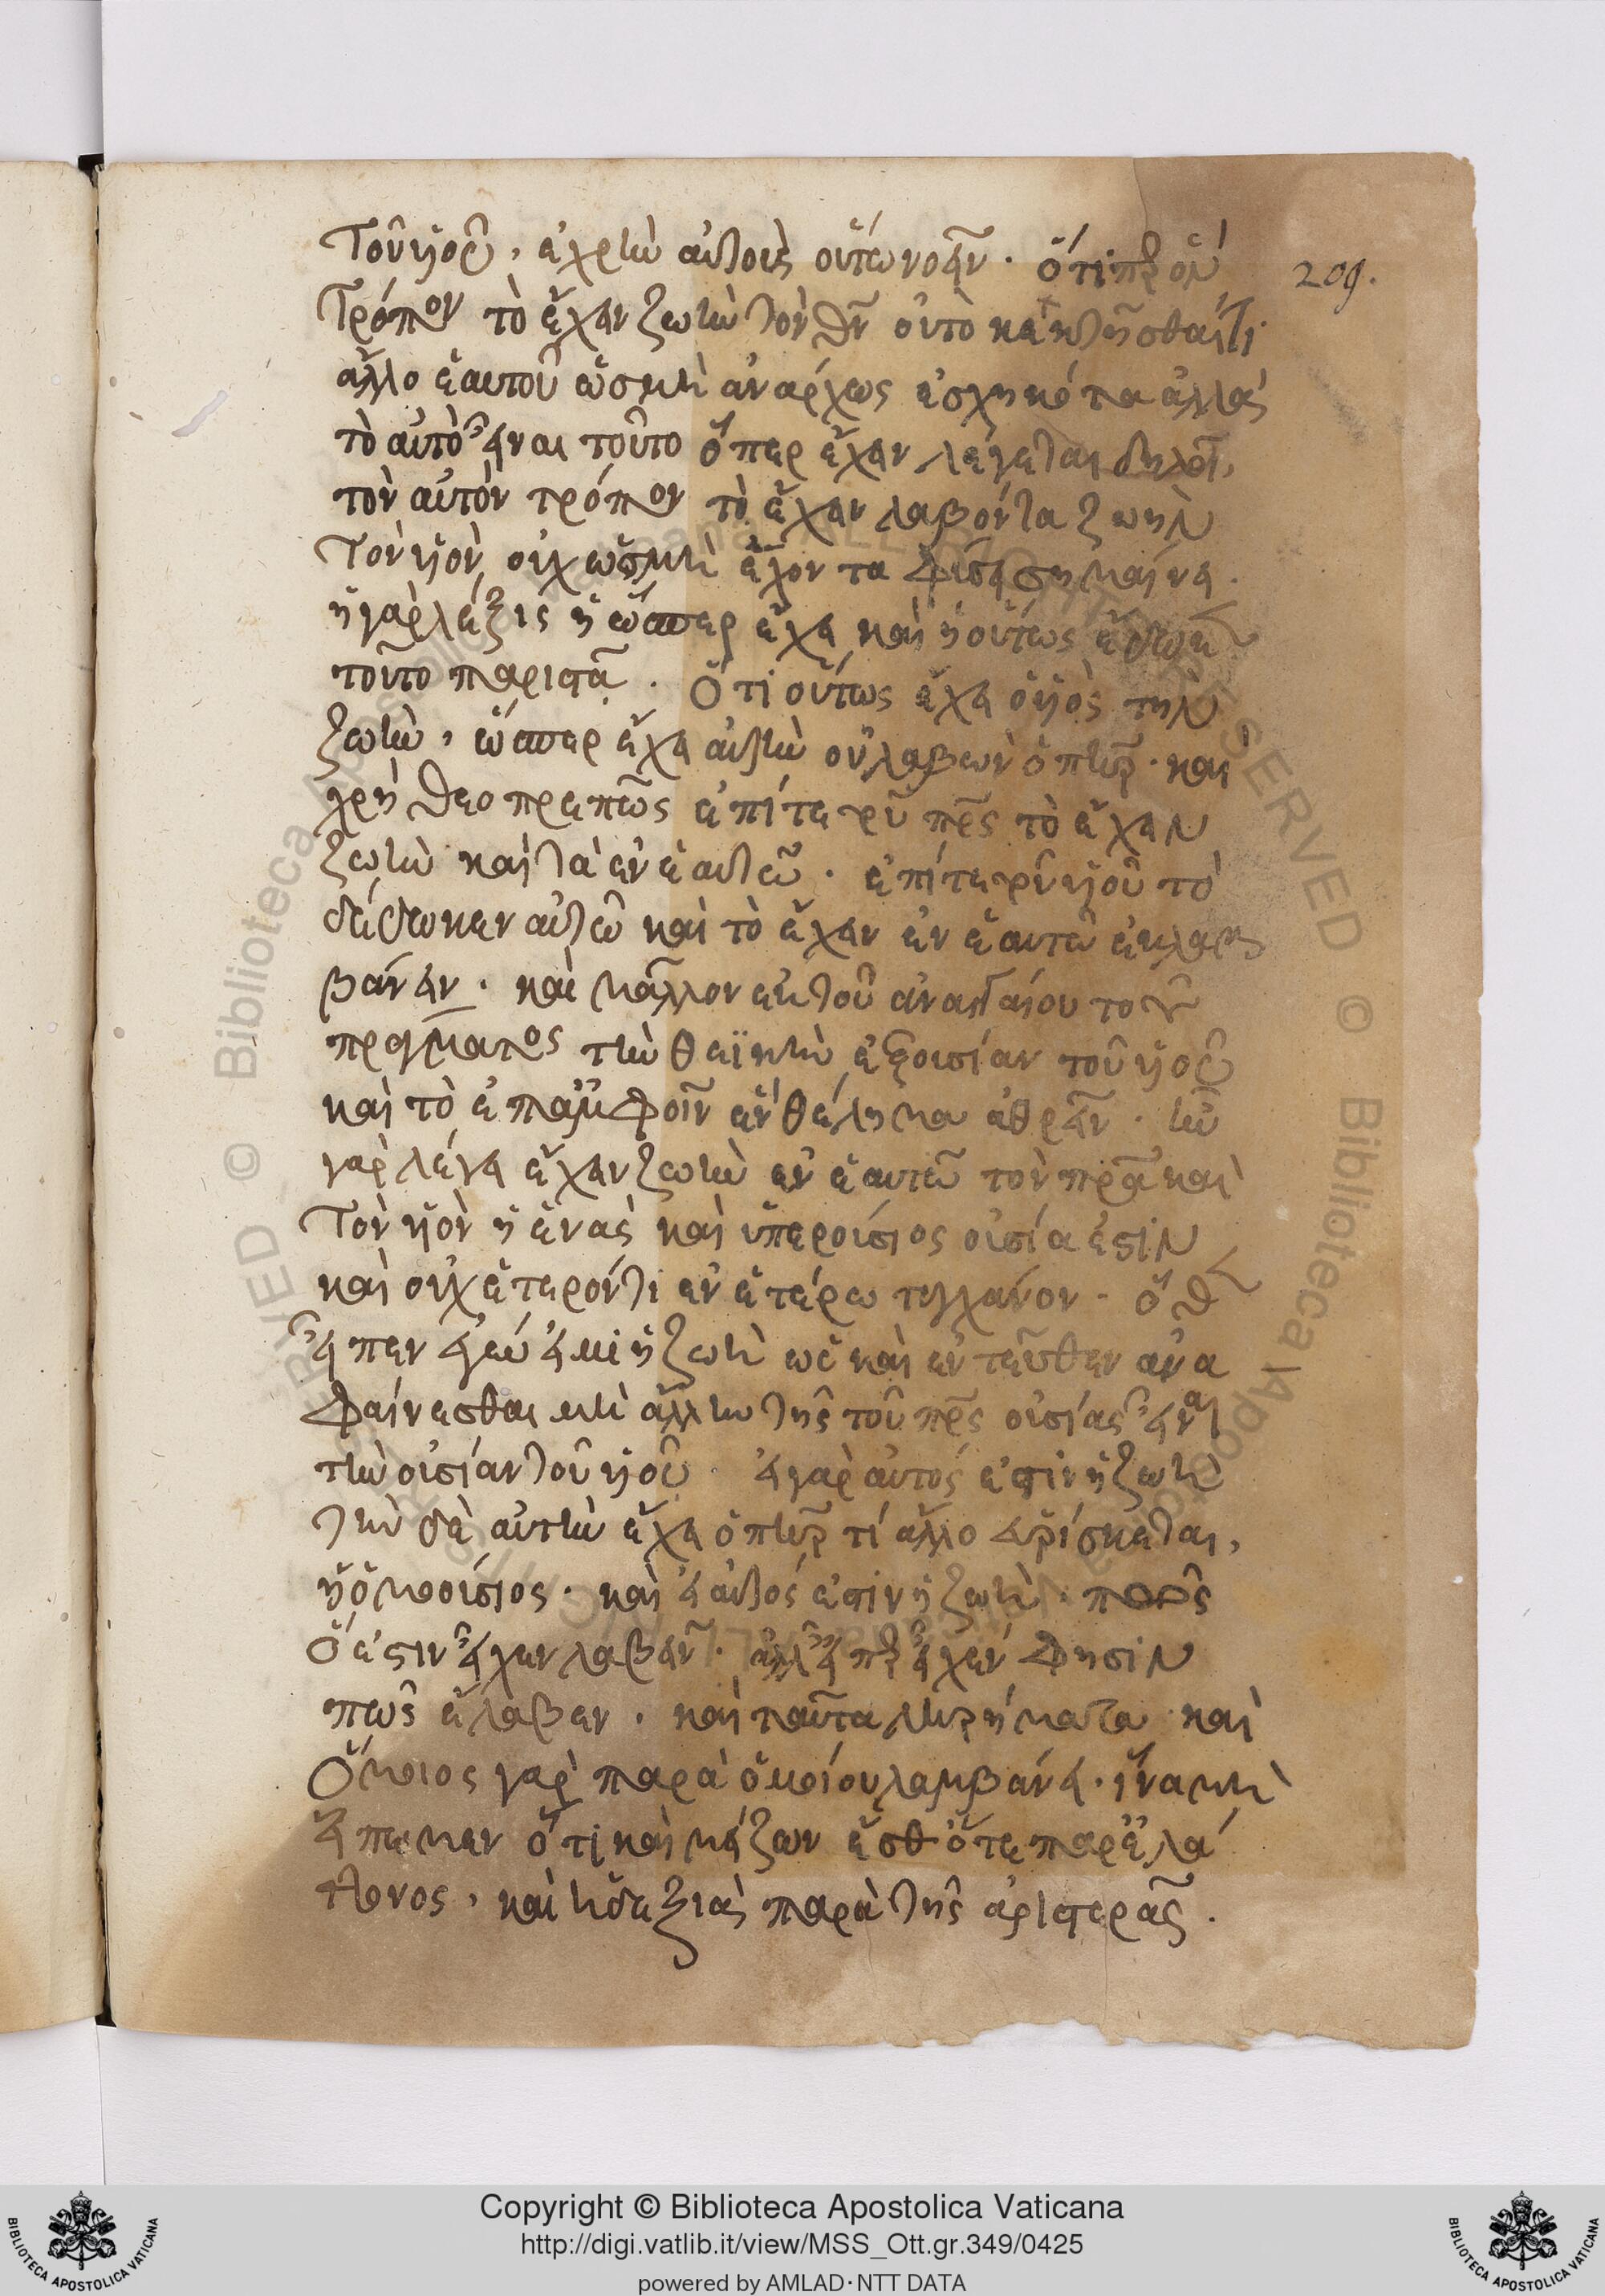 τοῦ υἱοῦ, ἐχρῆν αὐτοὺς οὕτω νοεῖν. ὅτι περ ὃν 209.
τρόπον τὸ ἔχειν ζωὴν τὸν θν οὐ τὸ κεκτῆσθαί τι
ἄλλο ἑαυτοῦ ὡς μὴ ἀνάρχως ἐσχηκότα ἀλλὰ
τὸ αὐτὸ εἶναι τοῦτο ὅπερ ἔχειν λέγεται δηλοῖ,
τὸν αὐτὸν τρόπον τὸ ἔχειν λαβόντα ζωὴν
τὸν υἱὸν οὐχ ὡς μὴ ἔχοντα φύσει σημαίνει.
ἡ γὰρ λέξις ἡ ὥσπερ ἔχει καὶ ἡ οὕτως ἔδωκε
τοῦτο παριστᾷ. Ὅτι οὕτως ἔχει ὁ υἱὸς τὴν
ζωὴν, ὥσπερ ἔχει αὐτὴν οὐ λαβὼν ὁ πηρ. καὶ
χρὴ θεοπρεπῶς ἐπί τε τοῦ πρς τὸ ἔχειν
ζωὴν καὶ τὰ ἐν ἑαυτῷ. ἐπί τε τοῦ υἱοῦ τὸ
δέδωκεν αὐτῷ καὶ τὸ ἔχειν ἐν ἑαυτῷ ἐκλαμ
βάνειν. καὶ μᾶλλον ἐκ τοῦ ἀναιτίου τοῦ
πράγματος τὴν θεϊκὴν ἐξουσίαν τοῦ υἱοῦ
καὶ τὸ ἐπ' ἀμφοῖν ἓν θέλημα ἀθρεῖν. ἣν
γὰρ λέγει ἔχειν ζωὴν ἐν ἑαυτῷ τὸν πρα καὶ
τὸν υἱὸν ἡ ἑνὰς καὶ ὑπερούσιος οὐσία ἐστὶν
καὶ οὐχ ἕτερόν τι ἐν ἑτέρω τυγχάνον. ὅθεν
εἶπεν ἐγώ εἰμι ἡ ζωὴ ὡς καὶ ἐντεῦθεν ἀνα
φαίνεσθαι μὴ ἄλλην τῆς τοῦ πρς οὐσίας εἶναι
τὴν οὐσίαν τοῦ υἱοῦ. εἰ γὰρ αὐτός ἐστιν ἡ ζωὴ
τὴν δὲ αὐτὴν ἔχει ὁ πηρ τί ἄλλο εὑρίσκεται,
ἢ ὁμοούσιος. καὶ εἰ αὐτός ἐστιν ἡ ζωὴ. πῶς
ὅ ἐστιν εἶχεν λαβεῖν. ἀλλ' εἴπερ εἶχέν φησιν
πῶς ἔλαβεν. καὶ ταῦτα ληρήματα καὶ
Ὅμοιος γὰρ παρὰ ὁμοίου λαμβάνει. ἵνα μὴ
εἴπωμεν ὅτι καὶ μείζων ἔσθ' ὅτε παρ' ἐλά
ττονος, καὶ ἡ δεξιὰ παρὰ τῆς ἀριστερᾶς.
Copyright © Biblioteca Apostolica Vaticana
http://digi.vatlib.it/view/MSS_Ott.gr.349/0425
powered by AMLAD·NTT DATA